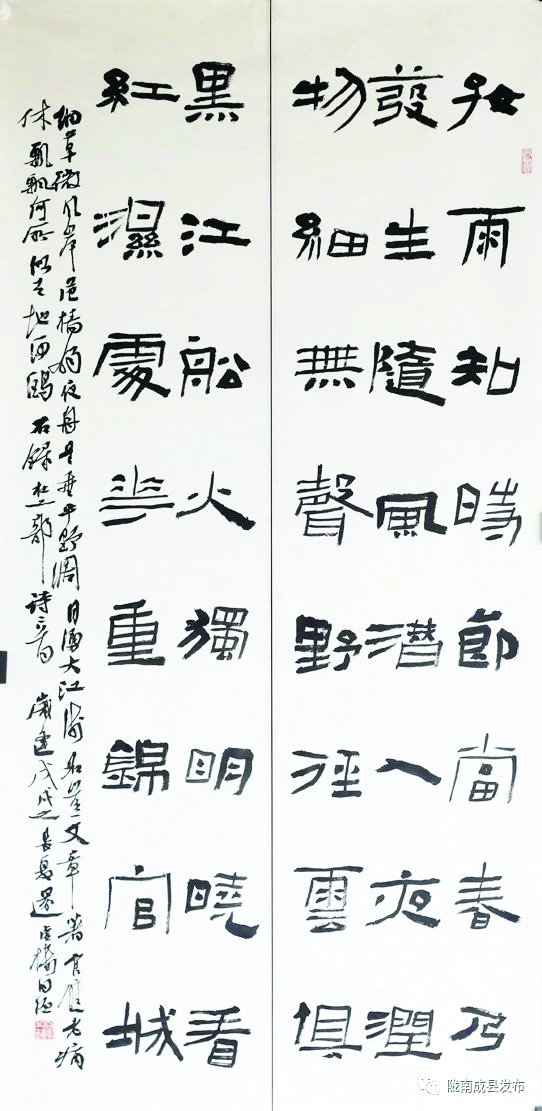 好雨知時節當春乃
發生隨風潛入夜潤
物細無聲野徑雲俱
黑江船火獨明曉看
紅濕處花重錦官城
細草微風岸危檣獨夜舟星垂平野闊月湧大江流名豈文章著官應老病
休飄飄何所似天地一沙鷗 右錄杜工部詩二首 歲逢戊戌之長夏
陇南成县发布